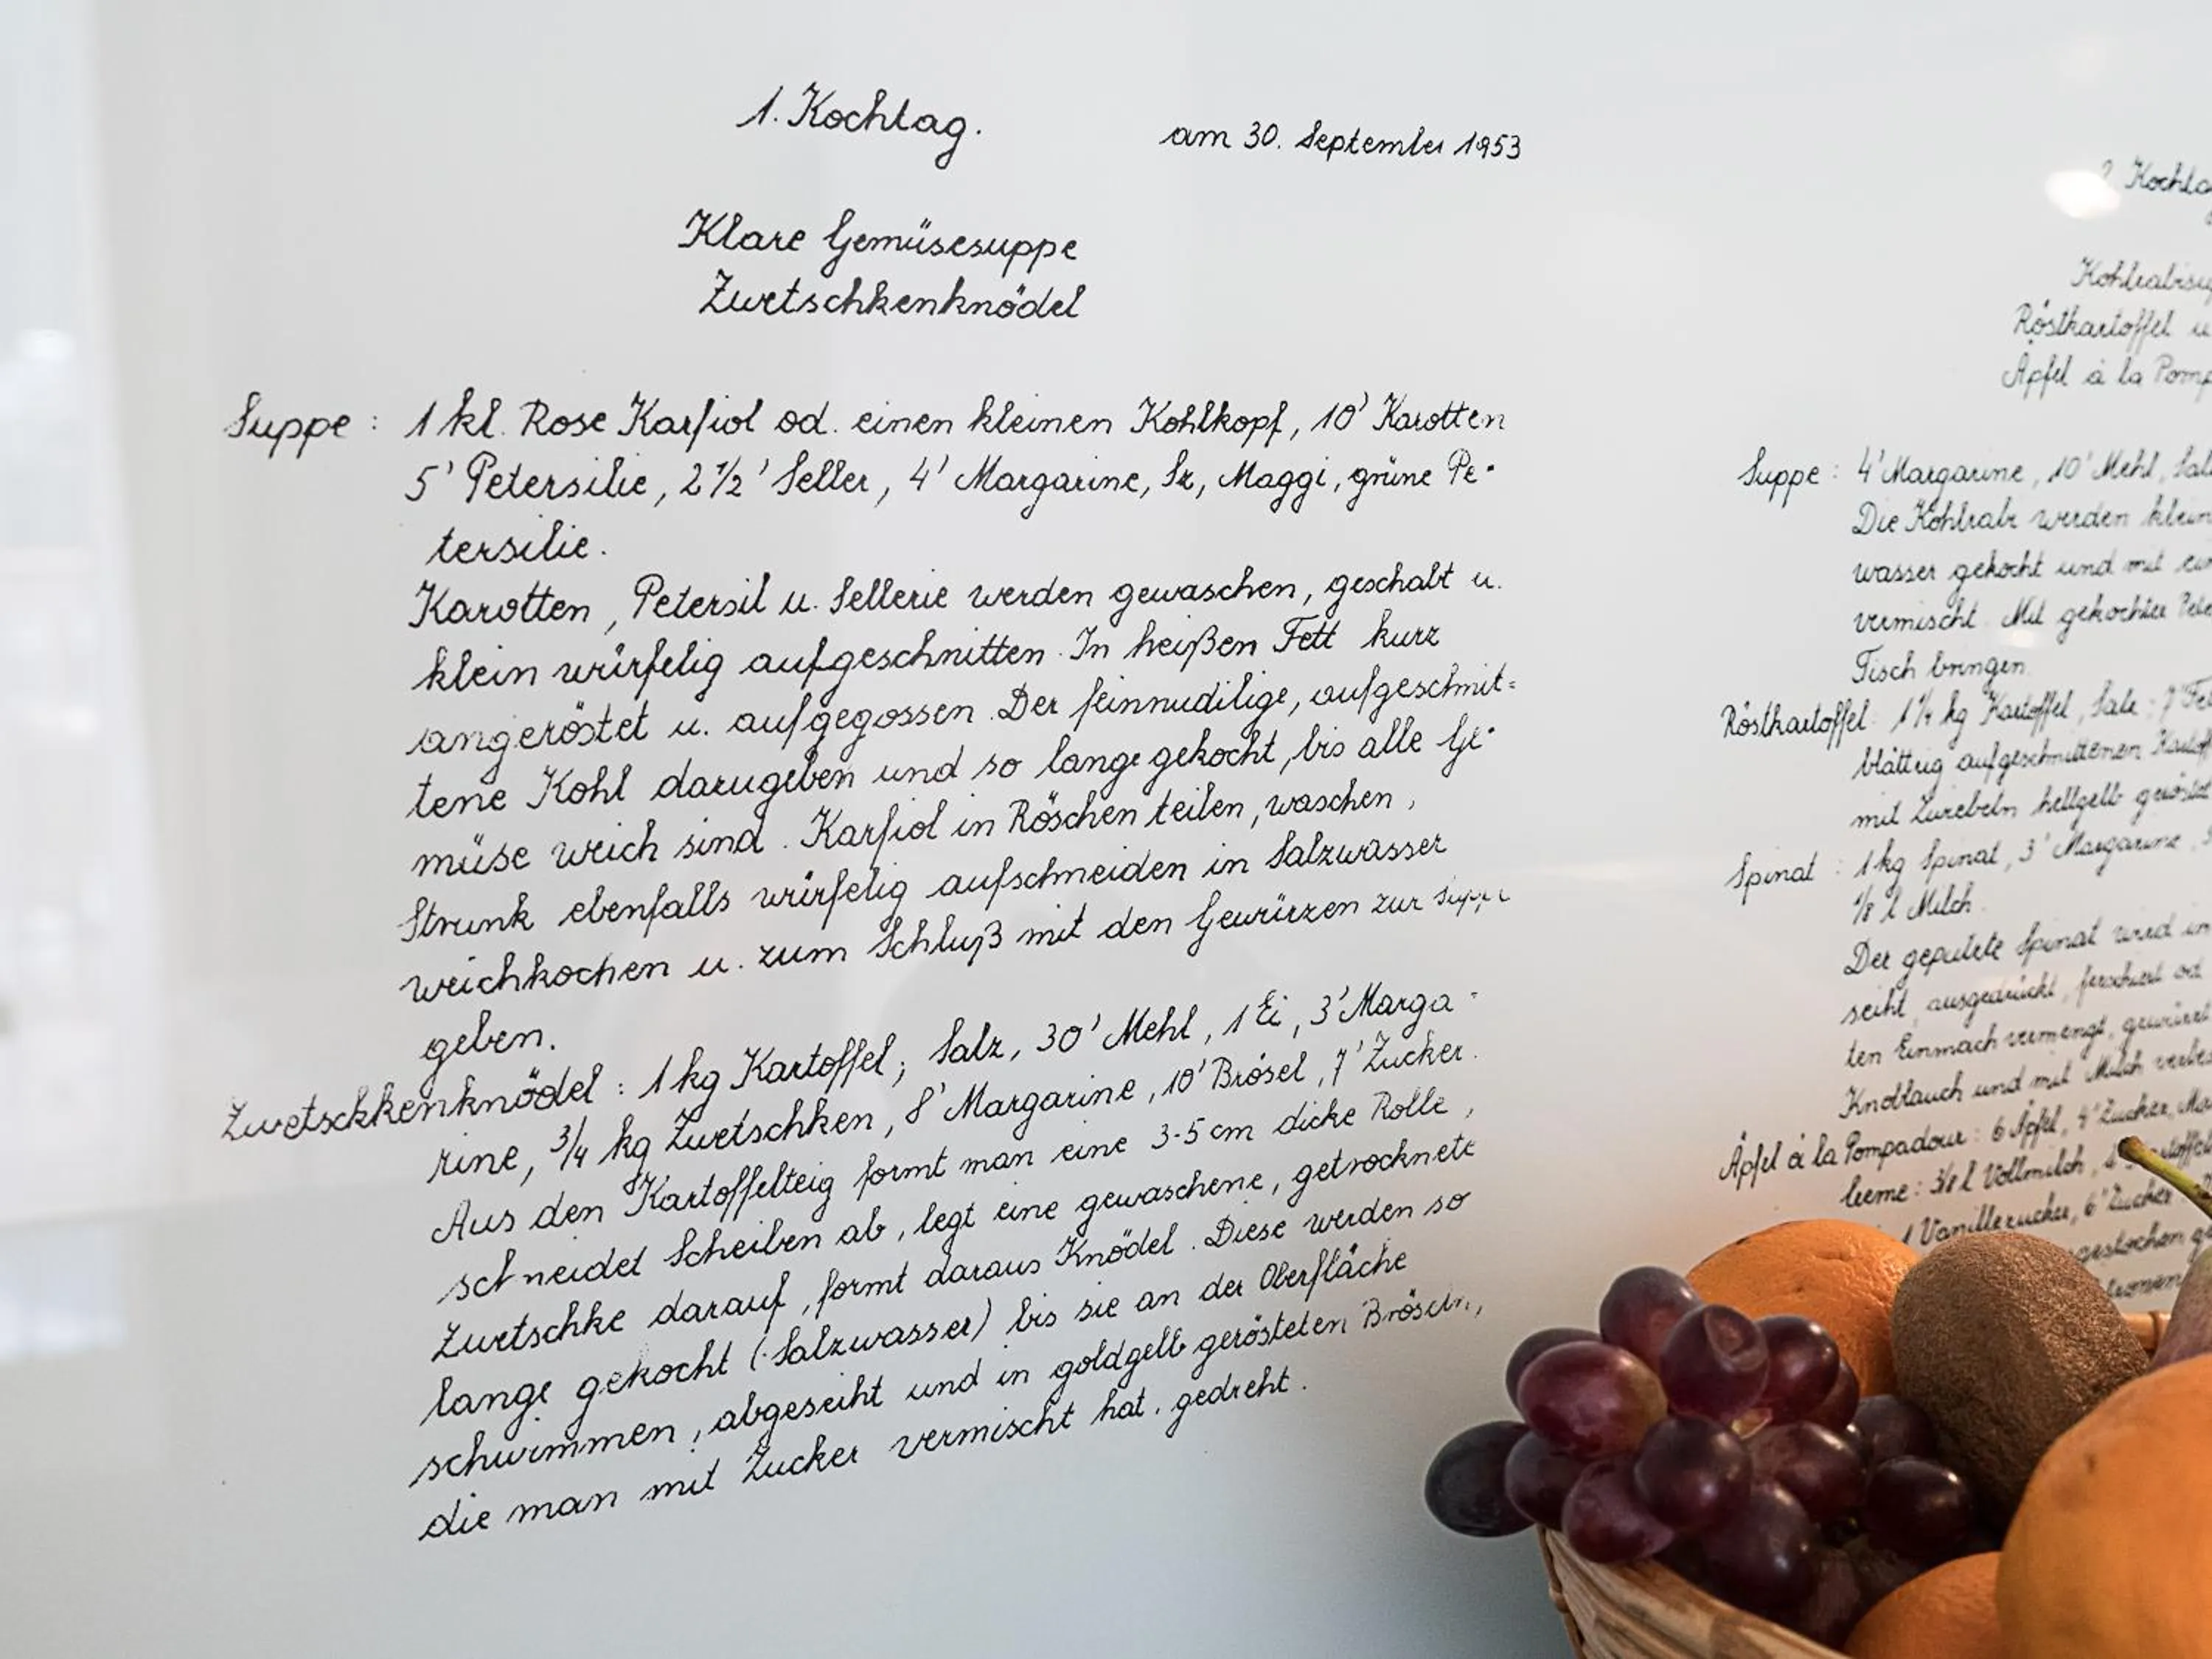 1. Kochtag.
am 30. September 1953
Klare Gemüsesuppe
Zwetschkenknödel
Suppe : 1 kl. Rose Karfiol od. einen kleinen Kohlkopf, 10' Karotten
5' Petersilie, 2 1/2' Seller, 4' Margarine, Sz, Maggi, grüne Pe-
tersilie.
Karotten, Petersil u. Sellerie werden gewaschen, geschabt u.
klein würfelig aufgeschnitten. In heißen Fett kurz
angeröstet u. aufgegossen. Der feinnudilige, aufgeschnit=
tene Kohl darugeben und so lange gekocht, bis alle Ge-
müse weich sind. Karfiol in Röschen teilen, waschen,
Strunk ebenfalls würfelig aufschneiden in Salzwasser
weichkochen u. zum Schluß mit den Gewürzen zur Suppe
geben.
Zwetschkenknödel : 1 kg Kartoffel; Salz, 30' Mehl, 1 Ei, 3' Marga-
rine, 3/4 kg Zwetschken, 8' Margarine, 10' Brösel, 7' Zucker.
Aus den Kartoffelteig formt man eine 3-5 cm dicke Rolle,
schneidet Scheiben ab, legt eine gewaschene, getrocknete
Zwetschke darauf, formt daraus Knödel. Diese werden so
lange gekocht (Salzwasser) bis sie an der Oberfläche
schwimmen, abgeseiht und in goldgelb gerösteten Bröseln,
die man mit Zucker vermischt hat, gedreht.
Röstkartoffel
Äpfel à la
Suppe : 4' Margarine, 10' Mehl,
Die Kohlrabi werden klein
wasser gekocht und mit
vermischt. Mit gekochter
Tisch bringen.
Röstkartoffel : 1 1/4 kg Kartoffel, Salz, 7'
blättrig aufgeschnittenen
mit Zwiebeln hellgelb
Spinat : 1 kg Spinat, 3' Margarine,
1/8 l Milch.
Der geputzte Spinat wird
seiht, ausgedrückt, od.
ten Einmach vermengt,
Knoblauch und mit Milch
Äpfel à la Pompadour : 6 Äpfel, 4' Zucker,
3/8 l Vollmilch,
1 Vanillezucker, 6' Zucker